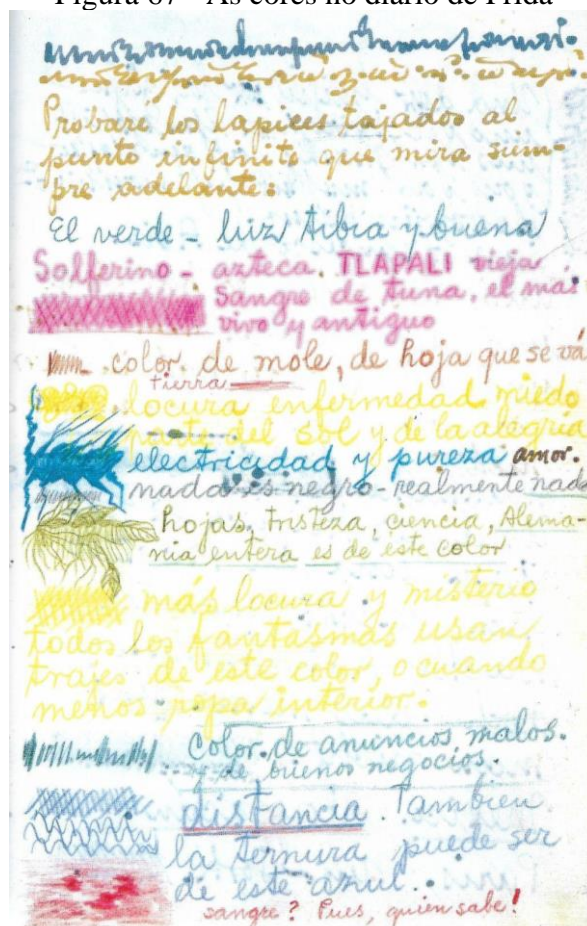 Figura 67 - As cores no diário de Frida
Probaré los lapices tajados al
punto infinito que mira siem-
pre adelante:
El verde - luz tibia y buena
Solferino - azteca. TLAPALI vieja
Sangre de tuna, el más
vivo y antiguo
color de mole, de hoja que se vá
tierra
locura enfermedad miedo
parte del sol y de la alegria
electricidad y pureza amor.
nada es negro - realmente nada
hojas, tristeza, ciencia, Alema-
nia entera es de este color
más locura y misterio
todos los fantasmas usan
trajes de este color, o cuando
menos ropa interior.
color de anuncios malos.
y de buenos negocios.
distancia. Tambien
la ternura puede ser
de este azul.
sangre? Pues, quien sabe!